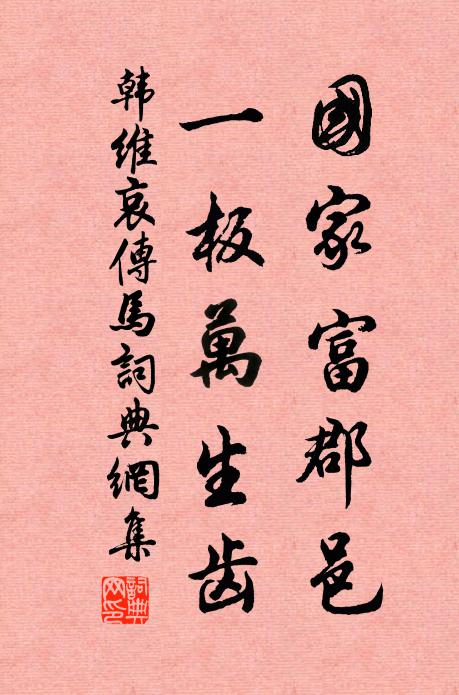 國家富郡邑
一板萬生齿
韩維哀傳馬詞典網集
詞典网印